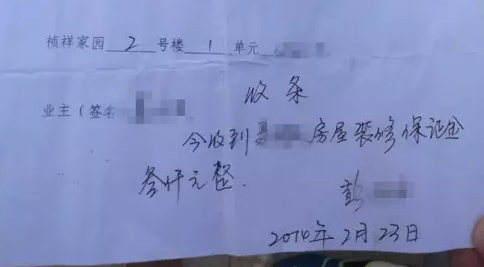 祯祥家园 2 号楼 1 单元
业主(签名
收条
今收到 房屋装修保证金
叁仟元整.
彭
2014年2月23日